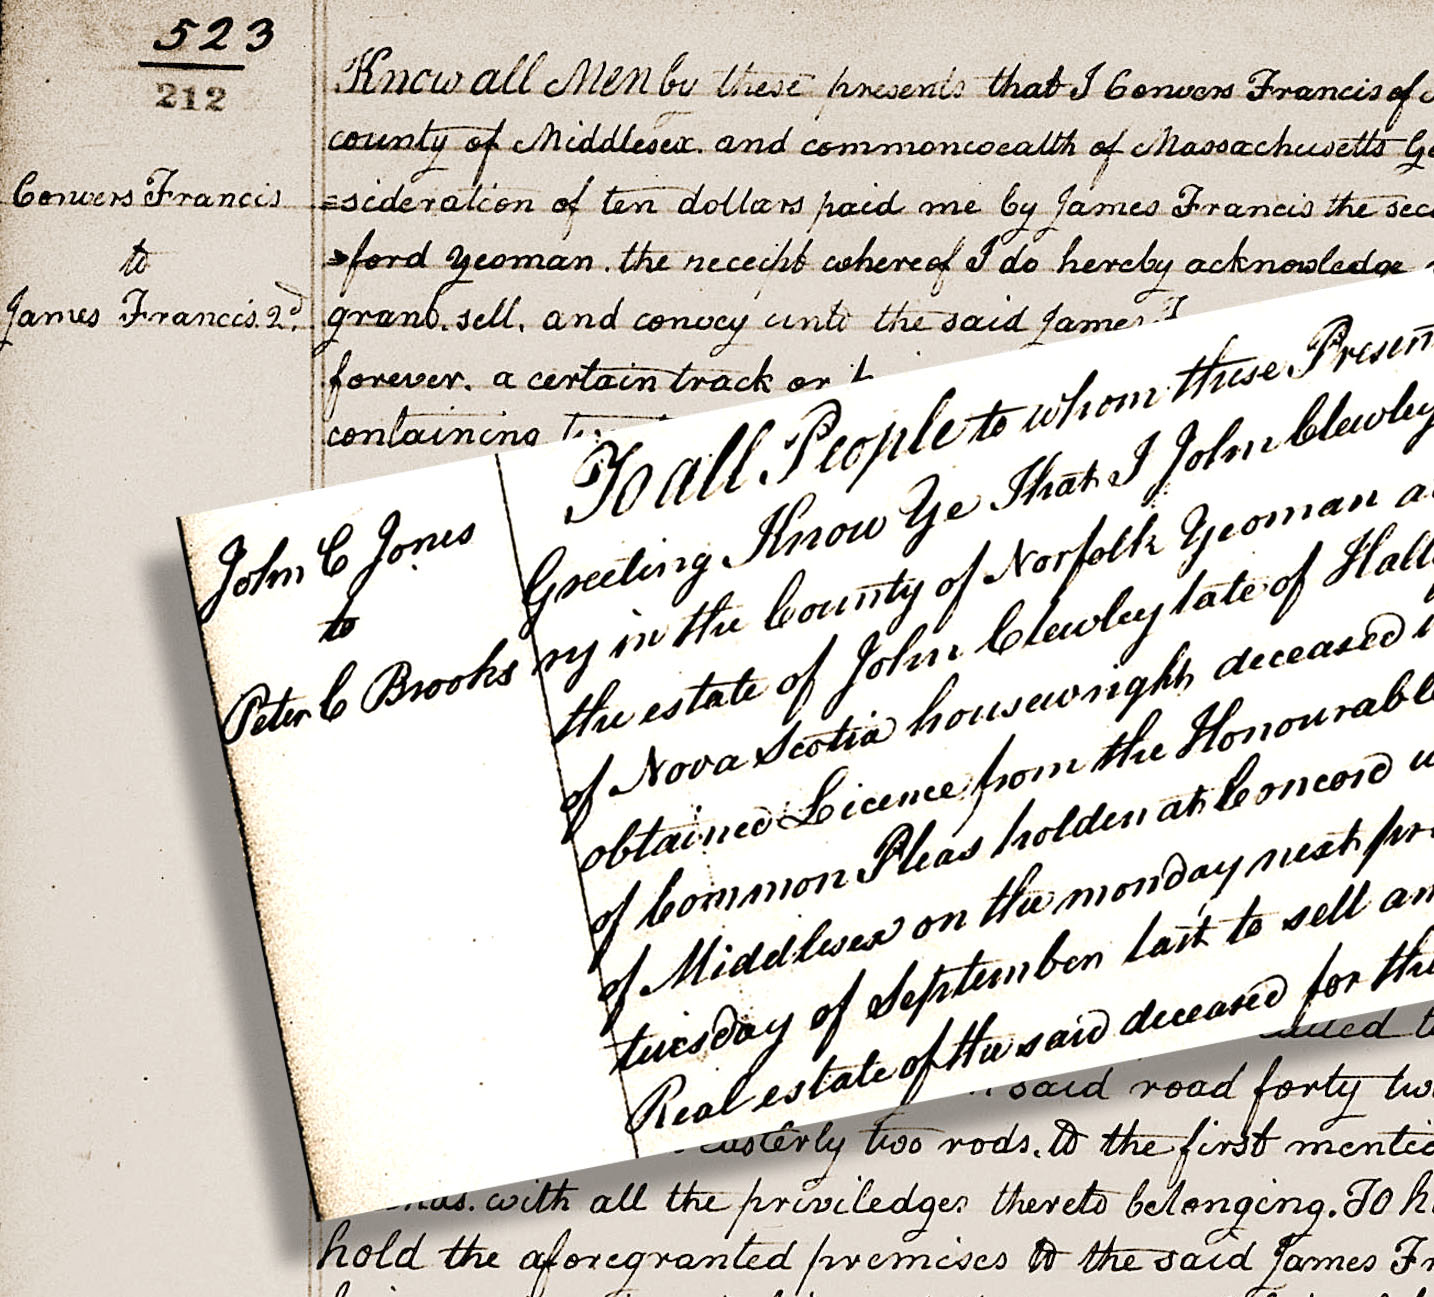 523
212
Convers Francis
to
James Francis. 2d.
Know all Men by these presents that I Convers Francis of
county of Middlesex. and commonwealth of Massachusetts
=sideration of ten dollars paid me by James Francis the
=ford Yeoman. the receipt whereof I do hereby acknowledge
grant. sell. and convey unto the said James
forever. a certain track or
containing
John C Jones
to
Peter C Brooks
To all People to whom these
Greeting Know Ye That I John Clewley
ry in the County of Norfolk Yeoman
the estate of John Clewley late of
of Nova Scotia housewright deceased
obtained Licence from the Honourable
of Common Pleas holden at Concord
of Middlesex on the monday next
tuesday of September last to sell
Real estate of the said deceased for the
said road forty
easterly two rods. to the first
with all the priviledges thereto belonging. To
hold the aforegranted premises to the said James